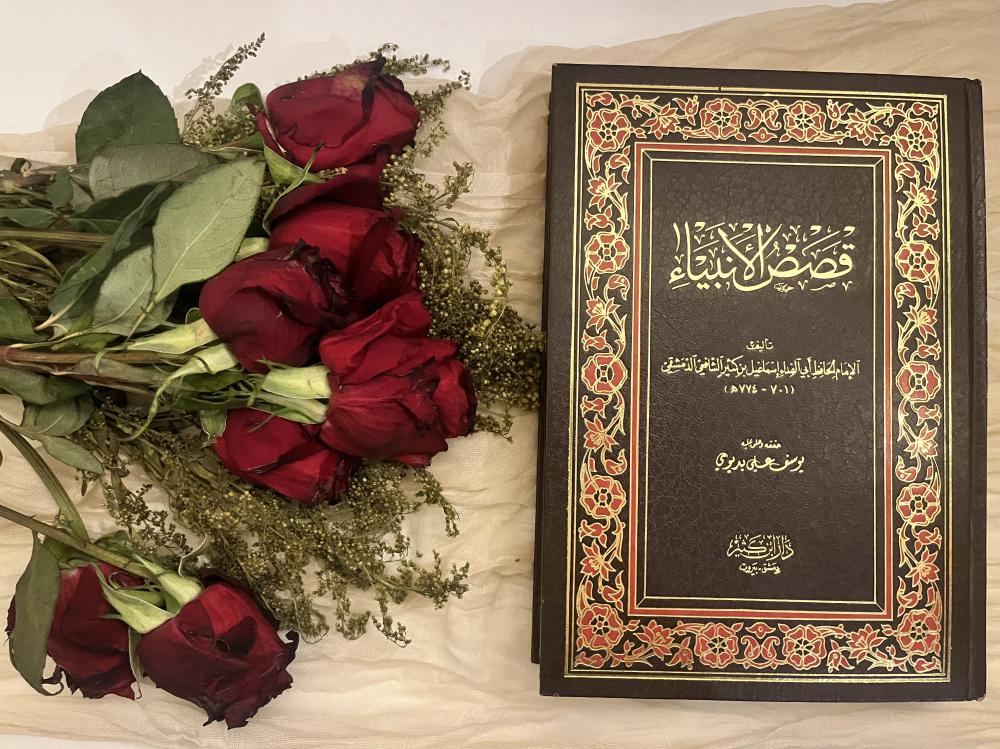 قصص الأنبياء
تأليف
الإمام الحافظ أبي الفداء إسماعيل بن كثير الشافعي الدمشقي
(٧٠١ - ٧٧٤ هـ)
حققه وعلق عليه
يوسف علي بديوي
دار ابن كثير
دمشق - بيروت